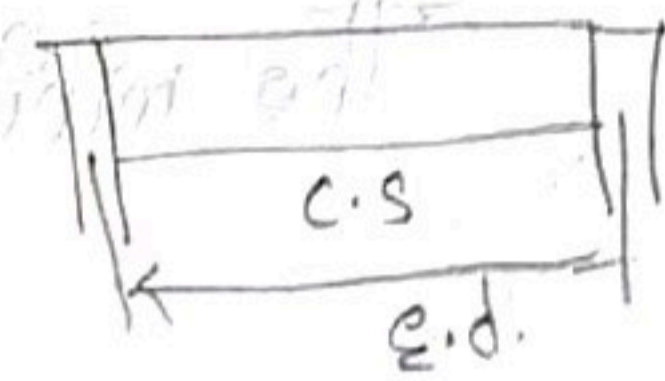 C.S
e.d.